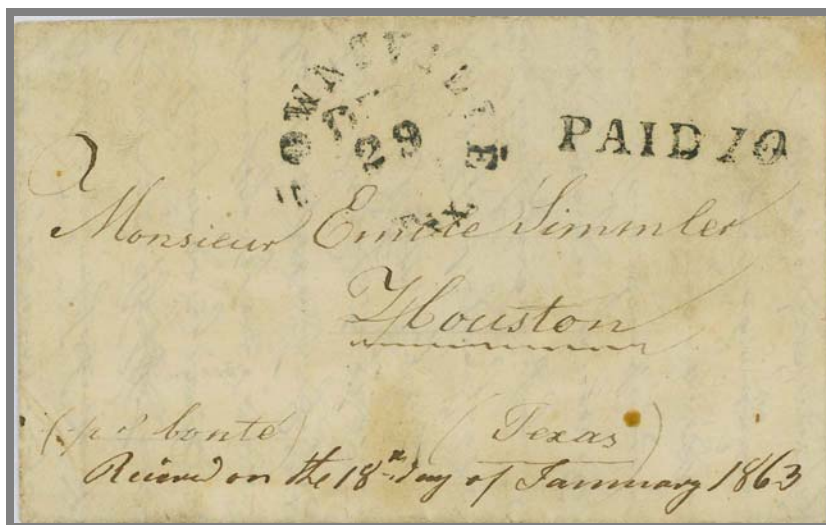 BROWNSVILLE
29
TX
PAID 10
Monsieur Simmler
Houston
bonté) (Texas)
on the 18th day of Jannuary 1863